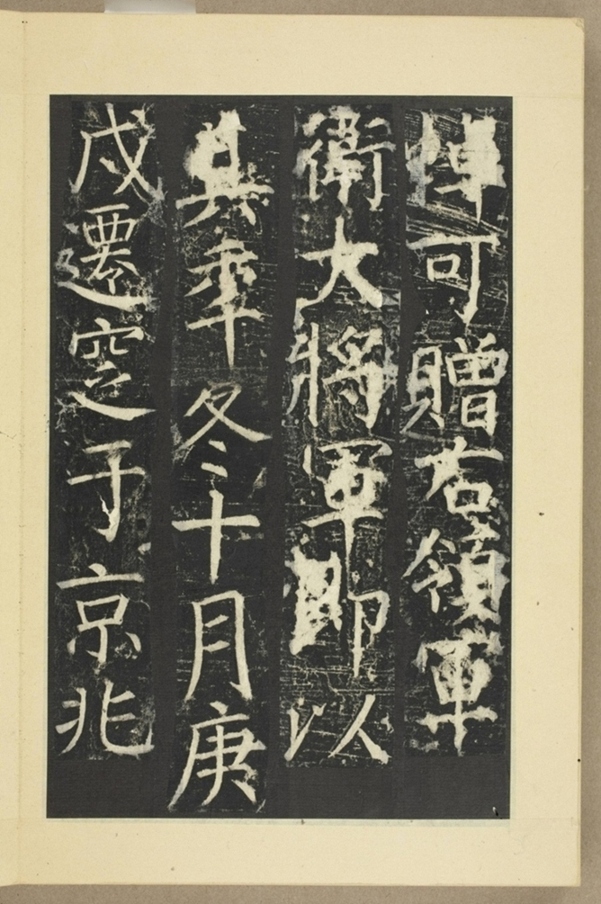 悼可贈右領軍
衛大將軍即以
其年冬十月庚
戌遷窆于京兆